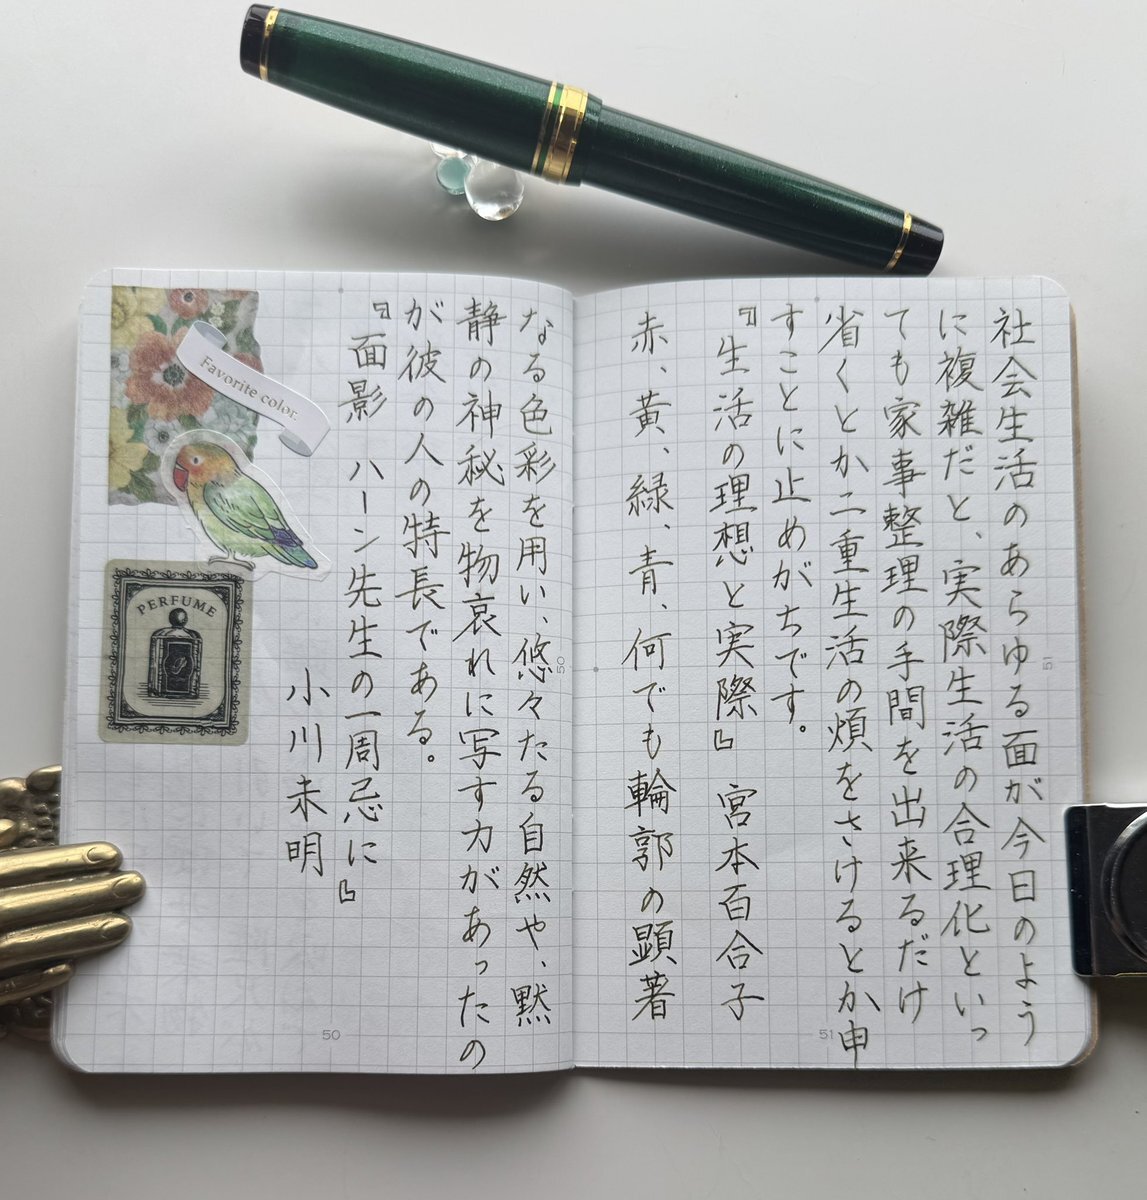 社会生活のあらゆる面が今日のよう
に複雑だと、実際生活の合理化といっ
ても家事整理の手間を出来るだけ
省くとか二重生活の煩をさけるとか申
すことに止めがちです。
『生活の理想と実際』 宮本百合子
赤、黄、緑、青、何でも輪郭の顕著
なる色彩を用い、悠々たる自然や、黙
静の神秘を物哀れに写す力があったの
が彼の人の特長である。
『面影 ハーン先生の一周忌に』
小川未明
Favorite color.
PERFUME
50
51
50
51